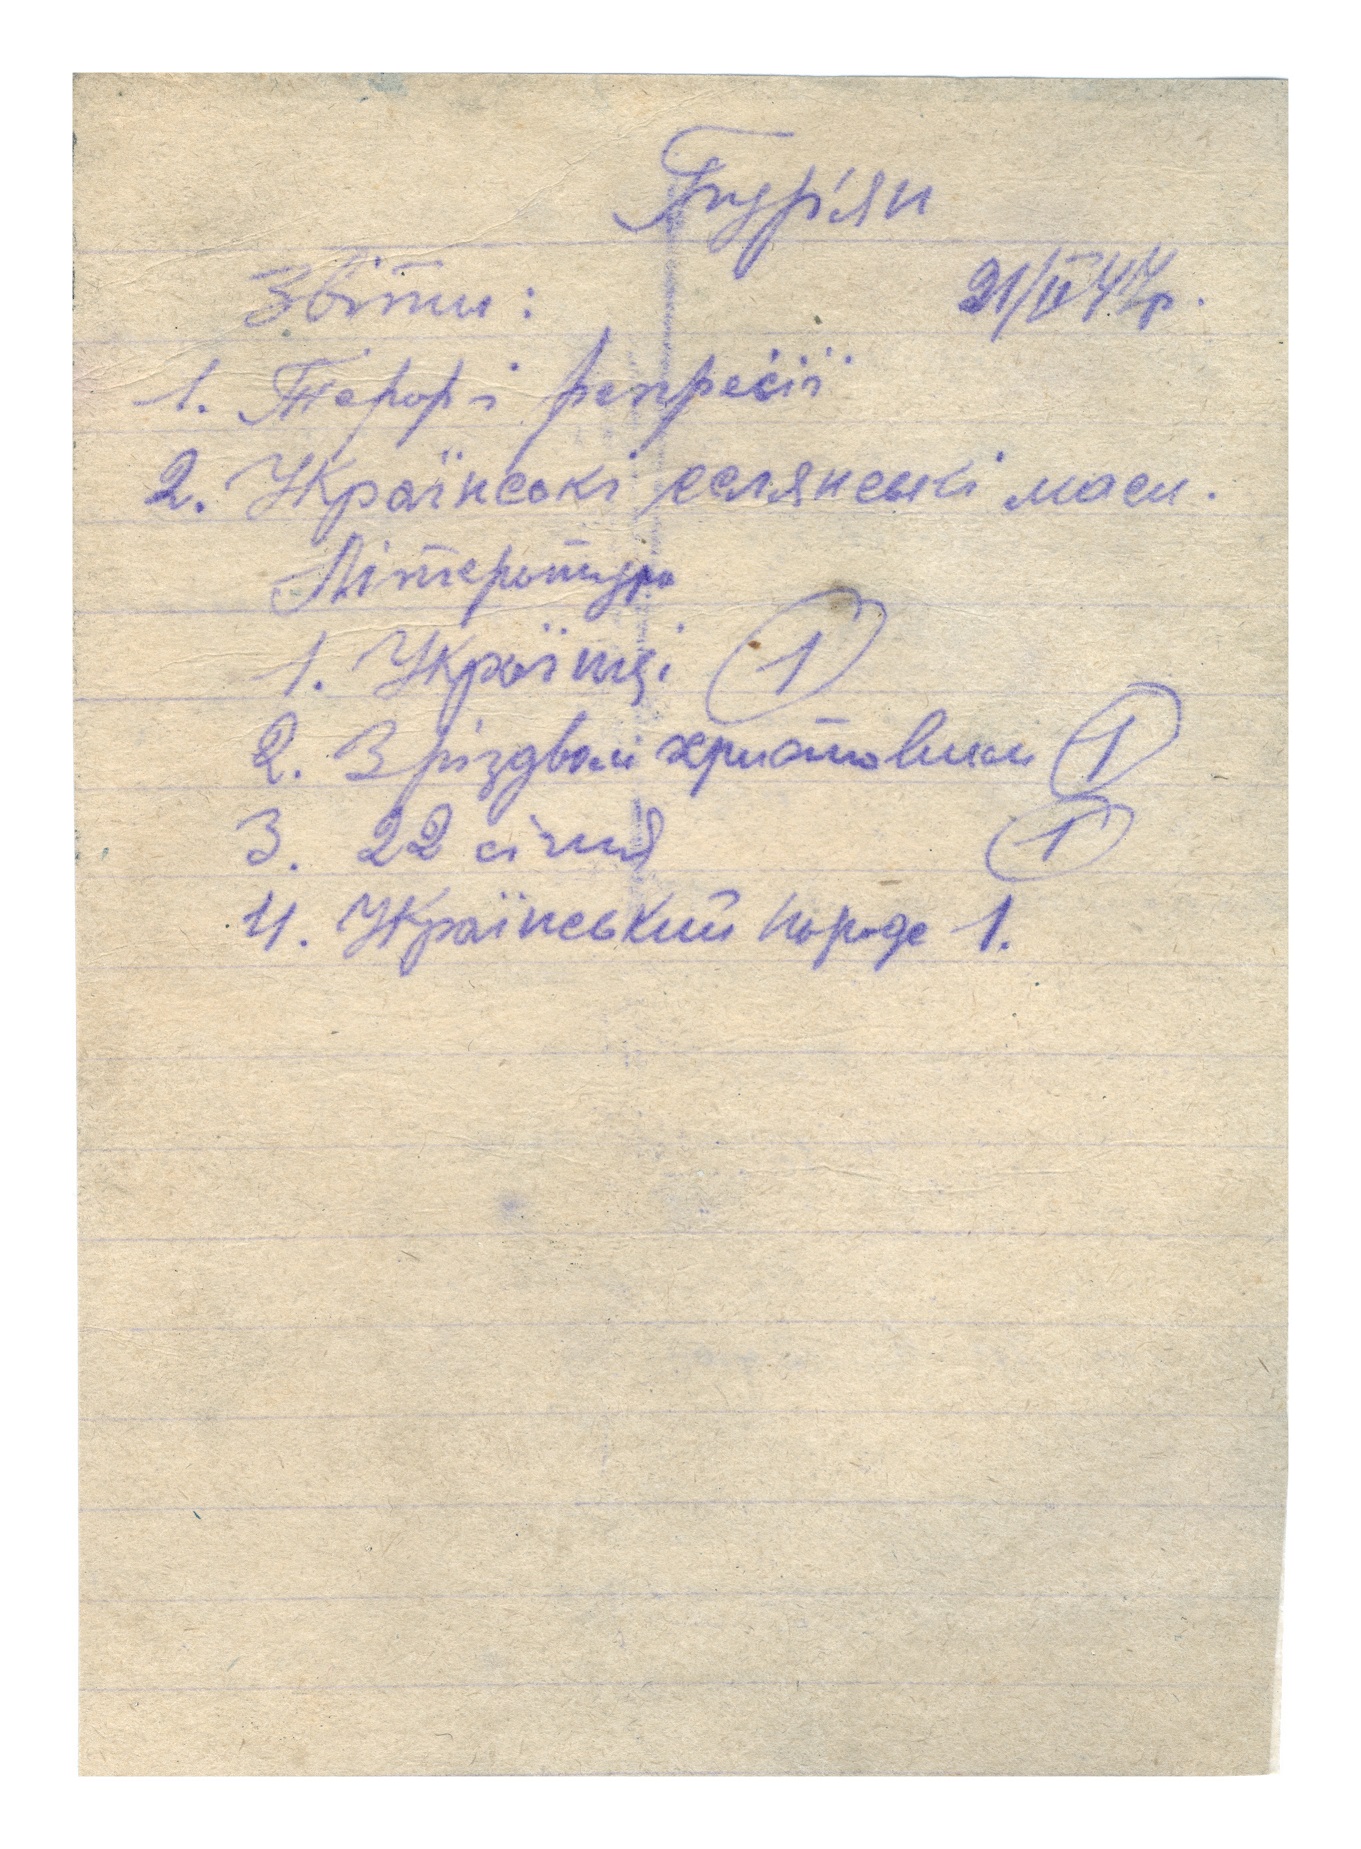 Звіти:
1. Терор і репресії
2. Українські селянські маси.
Література
1. Українці 1
2. З різдвом христовим 1
3. 22 січня 1
4. Український народе 1.